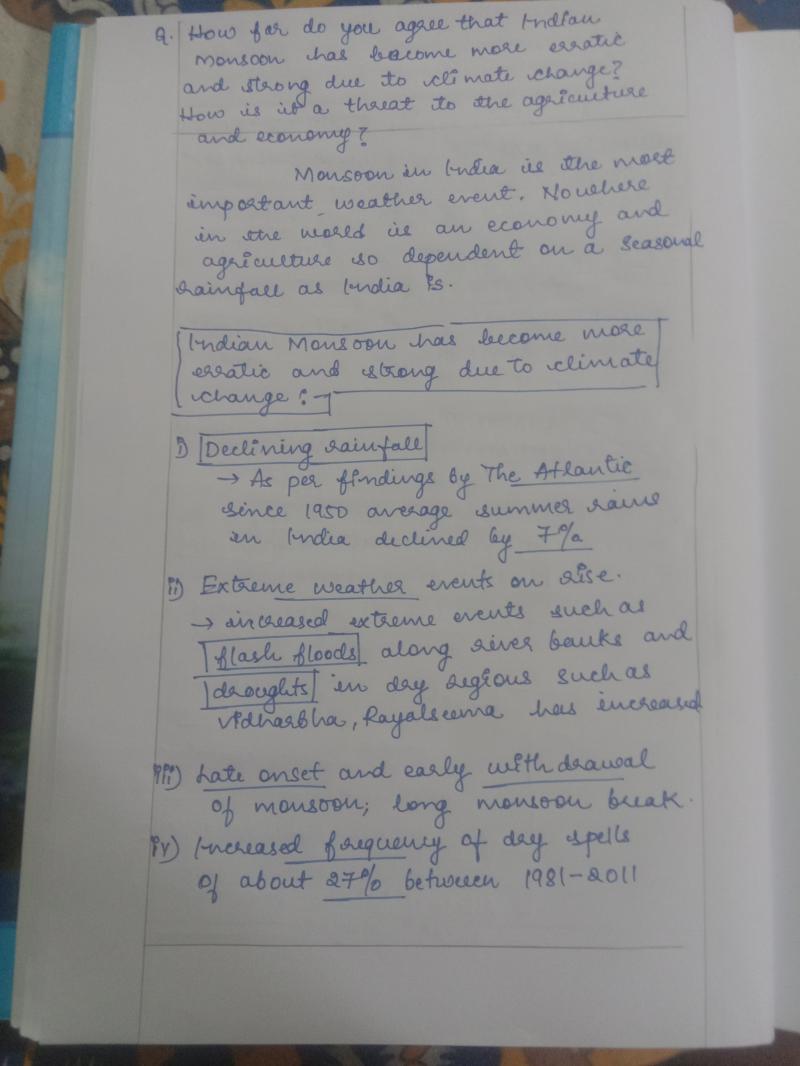 Q. How far do you agree that Indian
Monsoon has become more erratic
and strong due to climate change?
How is it a threat to the agriculture
and economy?
Monsoon in India is the most
important weather event. Nowhere
in the world is an economy and
agriculture so dependent on a seasonal
rainfall as India is.
Indian Monsoon has become more
erratic and strong due to climate
change :-
i) Declining rainfall
→ As per findings by The Atlantic
since 1950 average summer rains
in India declined by 7%
ii) Extreme weather events on rise.
→ increased extreme events such as
flash floods along river banks and
droughts in dry regions such as
Vidharbha, Rayalseema has increased
iii) Late onset and early withdrawal
of monsoon; long monsoon break.
iv) Increased frequency of dry spells
of about 27% between 1981-2011